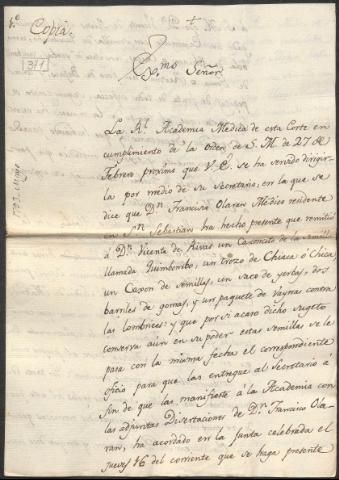 Copia.
+
Ex.mo Señor
311
La Rl. Academia Medica de esta Corte en
cumplimiento de la Orden de S. M. de 27 de
Febrero proximo que V. E. se ha servido dirigir-
la por medio de su Secretario, en la que se
dice que Dn. Francisco Olaran Medico residente
en Sn. Sebastian ha hecho presente que remitió
á Dn. Vicente de Rivas un Caxoncito de la semilla
llamada Quimbombo, un trozo de Chiaca ó Chica
un Caxon de semillas, un saco de yerbas, dos
barriles de gomas, y un paquete de Vaynas contra
las lombrices: y que por si acaso dicho sugeto
conserva aún en su poder estas semillas se le
pasa con la misma fecha el correspondiente
oficio para que las entregue al Secretario á
fin de que las manifieste á la Academia con
las adjuntas Disertaciones de Dn. Francisco Ola-
ran, ha acordado en la Junta celebrada el
jueves 16 del corriente que se haga presente